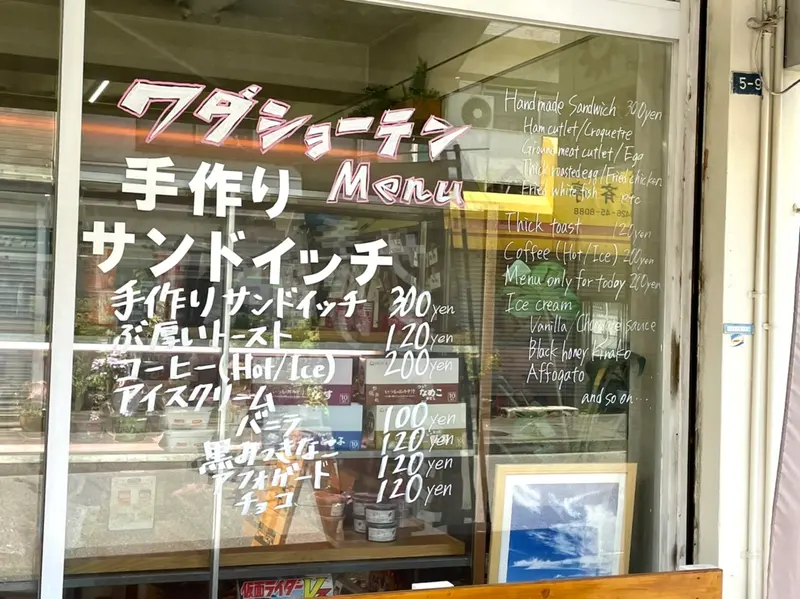 ワダショーテン
Menu
手作り
サンドイッチ
手作りサンドイッチ 300yen
ぶ厚いトースト 120yen
コーヒー(Hot/Ice) 200yen
アイスクリーム
バニラ 100yen
黒みつきなこ 120yen
アフォガード 120yen
チョコ 120yen
Handmade Sandwich 300yen
Ham cutlet/Croquette
Ground meat cutlet/Egg
Thick roasted egg/Fried chicken
Fried white fish etc
Thick toast 120yen
Coffee (Hot/Ice) 200yen
Menu only for today 200yen
Ice cream
Vanilla Chocolate sauce
Black honey Kinako
Affogato
and so on...
5-9
26-45-8088
なめこ
仮面ライダーV3